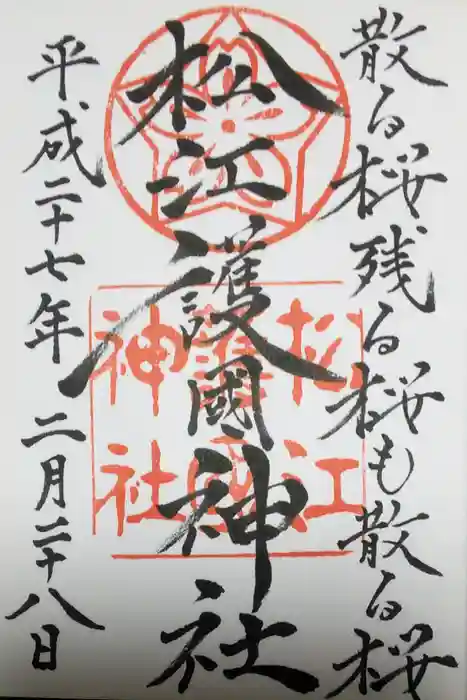 散る桜残る桜も散る桜
松江護國神社
松江
護國
神社
平成二十七年二月二十八日